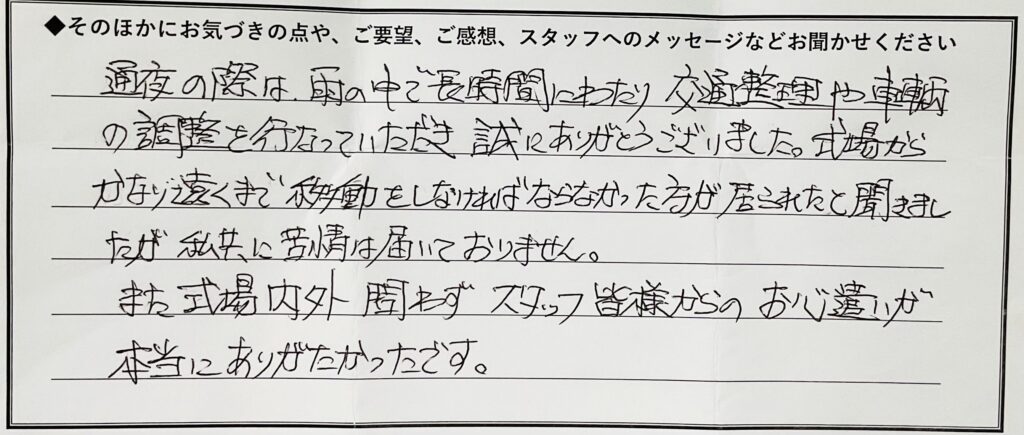 ◆そのほかにお気づきの点や、ご要望、ご感想、スタッフへのメッセージなどお聞かせください
通夜の際は、雨の中で長時間にわたり 交通整理や車輌
の調整を行なっていただき 誠にありがとうございました。式場から
かなり遠くまで移動をしなければならなかった方が居られたと聞きまし
たが 私共に苦情は届いておりません。
また式場内外 問わず スタッフ皆様からの お心遣いが
本当にありがたかったです。